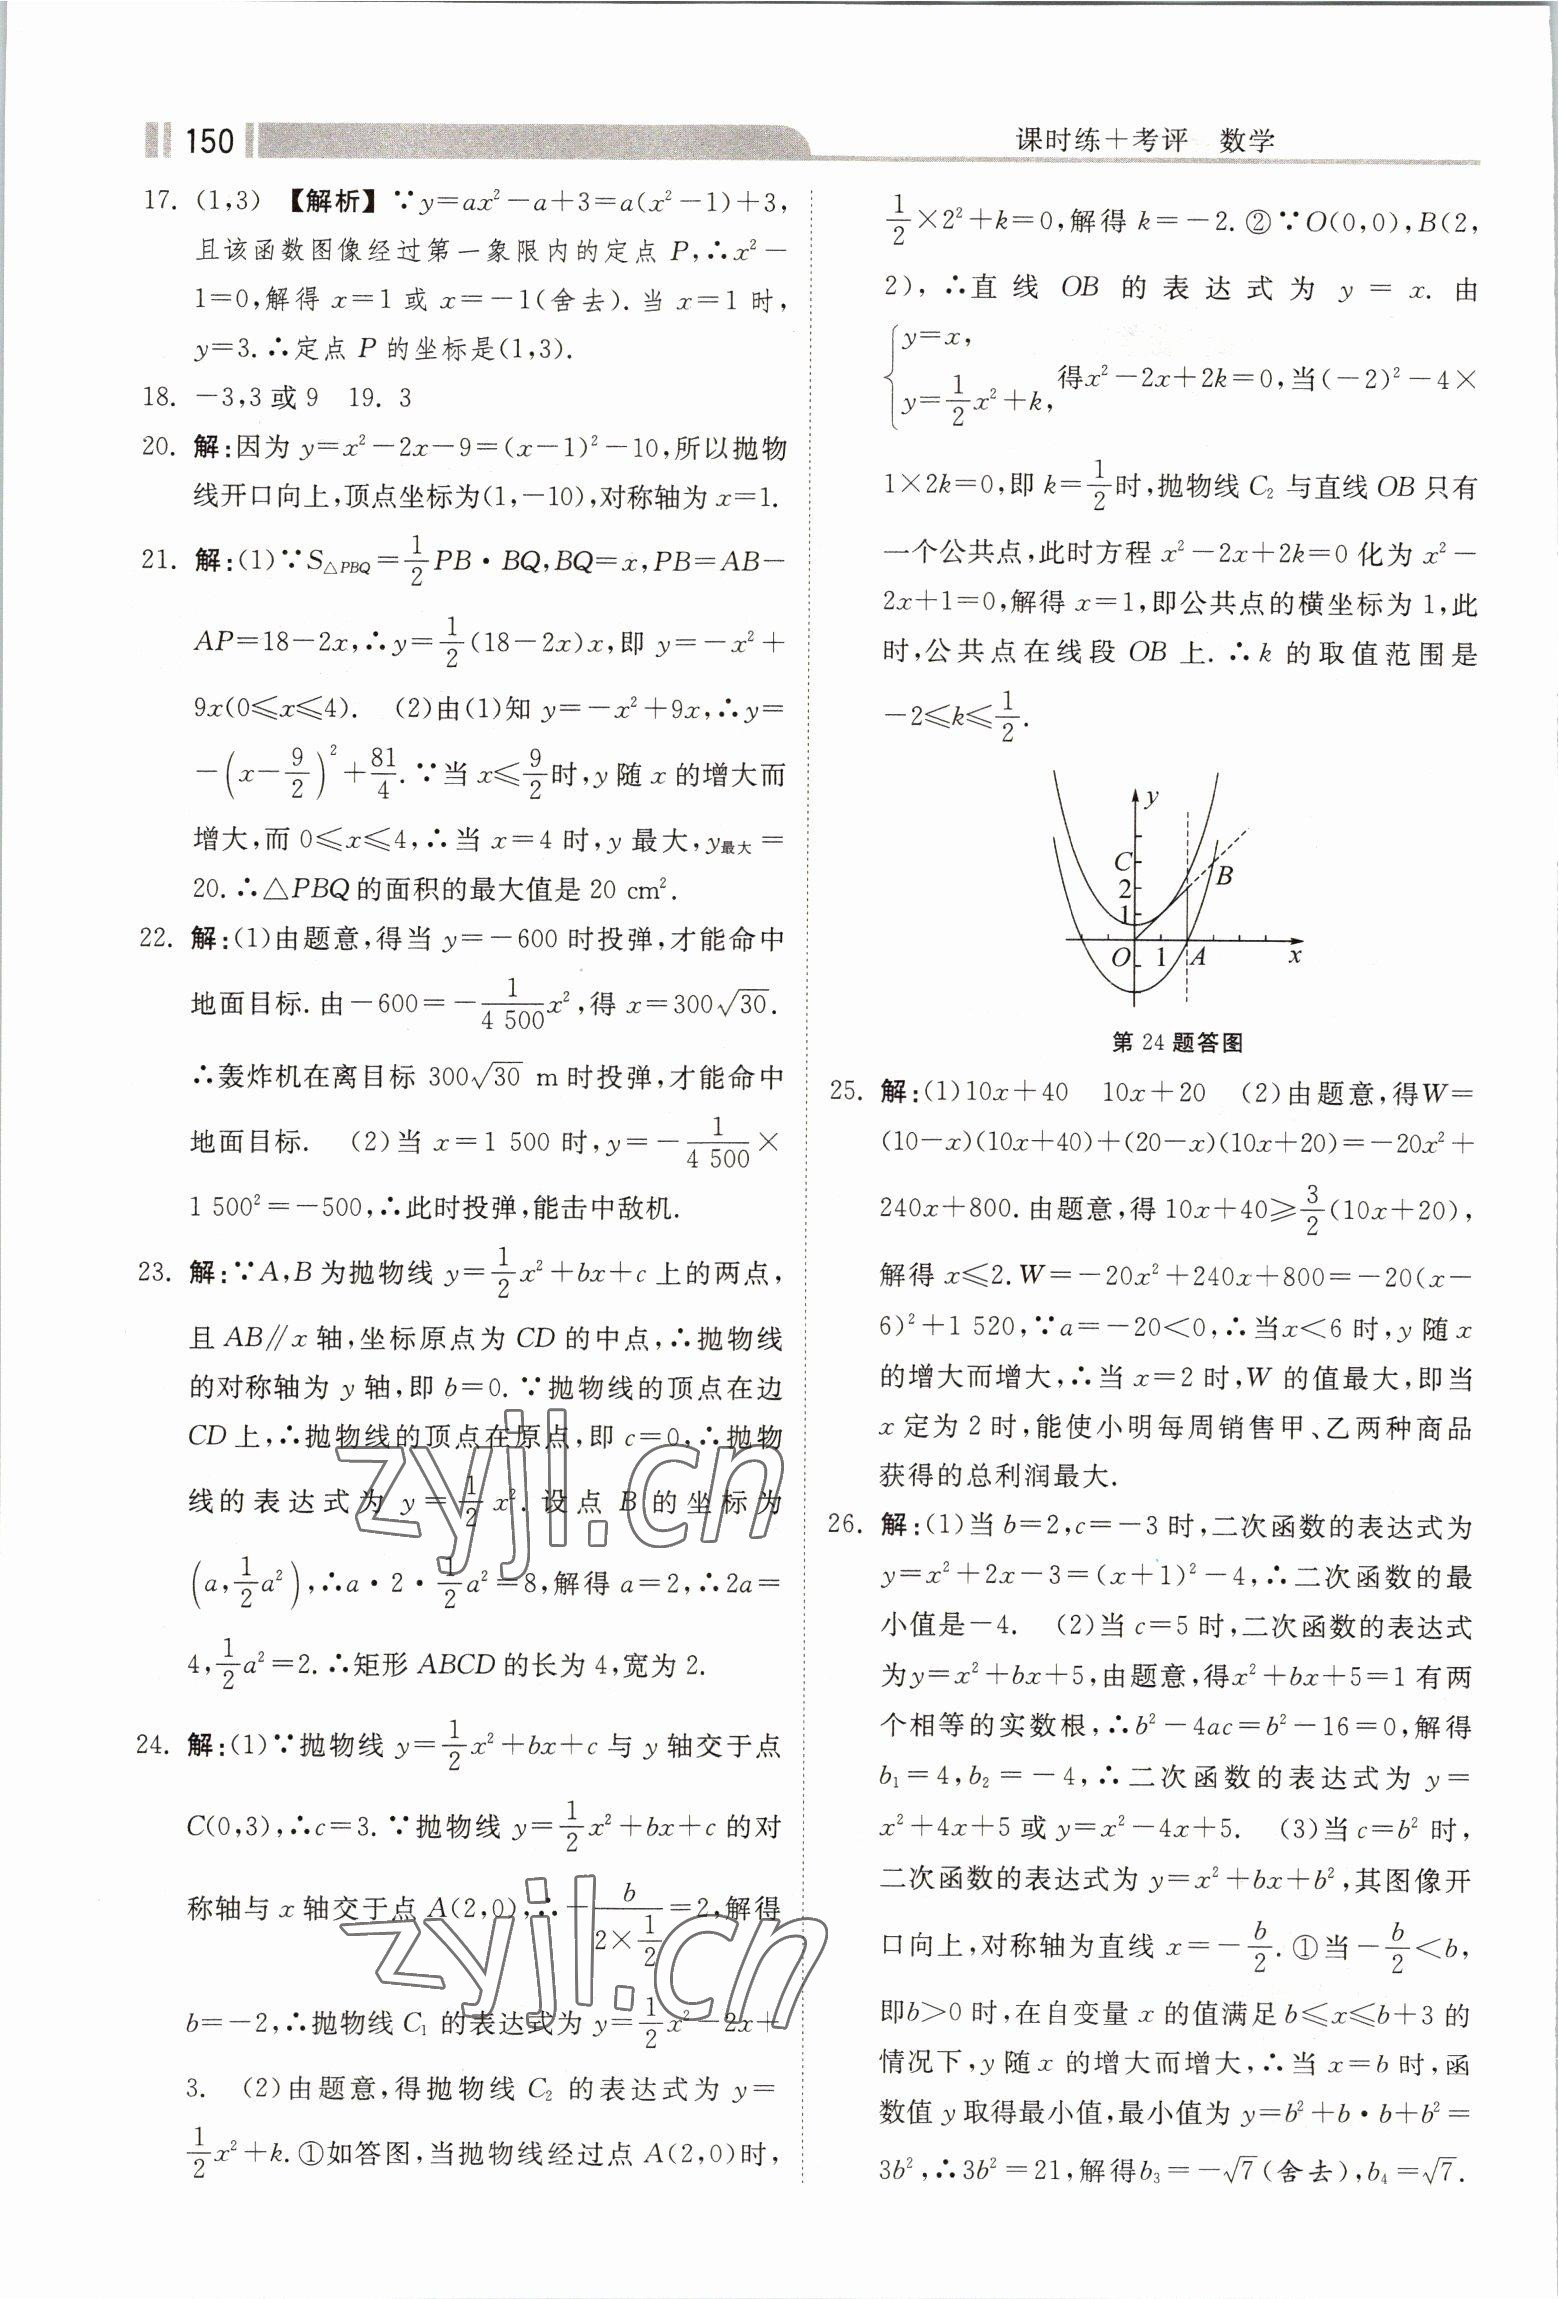 150
课时练+考评 数学
17. (1,3) 【解析】∵y=ax²-a+3=a(x²-1)+3,
且该函数图像经过第一象限内的定点 P,∴x²-
1=0,解得 x=1 或 x=-1(舍去). 当 x=1 时,
y=3. ∴定点 P 的坐标是(1,3).
18. -3,3 或 9 19. 3
20. 解:因为 y=x²-2x-9=(x-1)²-10,所以抛物
线开口向上,顶点坐标为(1,-10),对称轴为 x=1.
21. 解:(1)∵S△PBQ=1/2 PB·BQ,BQ=x,PB=AB-
AP=18-2x,∴y=1/2(18-2x)x,即 y=-x²+
9x(0≤x≤4). (2)由(1)知 y=-x²+9x,∴y=
-(x-9/2)²+81/4. ∵当 x≤9/2时,y 随 x 的增大而
增大,而 0≤x≤4,∴当 x=4 时,y 最大,y最大=
20. ∴△PBQ的面积的最大值是 20 cm².
22. 解:(1)由题意,得当 y=-600 时投弹,才能命中
地面目标. 由-600=-1/4 500 x²,得 x=300√30.
∴轰炸机在离目标 300√30 m时投弹,才能命中
地面目标. (2)当 x=1 500 时,y=-1/4 500×
1 500²=-500,∴此时投弹,能击中敌机.
23. 解:∵A,B 为抛物线 y=1/2x²+bx+c 上的两点,
且 AB∥x 轴,坐标原点为 CD 的中点,∴抛物线
的对称轴为 y 轴,即 b=0. ∵抛物线的顶点在边
CD 上,∴抛物线的顶点在原点,即 c=0,∴抛物
线的表达式为 y=1/2x². 设点 B 的坐标为
(a,1/2a²),∴a·2·1/2a²=8,解得 a=2,∴2a=
4,1/2a²=2. ∴矩形 ABCD 的长为 4,宽为 2.
24. 解:(1)∵抛物线 y=1/2x²+bx+c 与 y 轴交于点
C(0,3),∴c=3. ∵抛物线 y=1/2x²+bx+c 的对
称轴与 x 轴交于点 A(2,0),∴-b/(2×1/2)=2,解得
b=-2,∴抛物线 C₁ 的表达式为 y=1/2x²-2x+
3. (2)由题意,得抛物线 C₂ 的表达式为 y=
1/2x²+k. ①如答图,当抛物线经过点 A(2,0)时,
1/2×2²+k=0,解得 k=-2. ②∵O(0,0),B(2,
2),∴直线 OB 的表达式为 y=x. 由
{y=x,
y=1/2x²+k, 得x²-2x+2k=0,当(-2)²-4×
1×2k=0,即 k=1/2时,抛物线 C₂ 与直线 OB 只有
一个公共点,此时方程 x²-2x+2k=0 化为 x²-
2x+1=0,解得 x=1,即公共点的横坐标为 1,此
时,公共点在线段 OB 上. ∴k 的取值范围是
-2≤k≤1/2.
y
C
2
B
1
O 1 A x
第 24 题答图
25. 解:(1)10x+40 10x+20 (2)由题意,得W=
(10-x)(10x+40)+(20-x)(10x+20)=-20x²+
240x+800. 由题意,得 10x+40≥3/2(10x+20),
解得 x≤2. W=-20x²+240x+800=-20(x-
6)²+1 520,∵a=-20<0,∴当x<6 时,y 随 x
的增大而增大,∴当 x=2 时,W 的值最大,即当
x 定为 2 时,能使小明每周销售甲、乙两种商品
获得的总利润最大.
26. 解:(1)当 b=2,c=-3 时,二次函数的表达式为
y=x²+2x-3=(x+1)²-4,∴二次函数的最
小值是-4. (2)当 c=5 时,二次函数的表达式
为y=x²+bx+5,由题意,得x²+bx+5=1 有两
个相等的实数根,∴b²-4ac=b²-16=0,解得
b₁=4,b₂=-4,∴二次函数的表达式为 y=
x²+4x+5 或 y=x²-4x+5. (3)当 c=b² 时,
二次函数的表达式为 y=x²+bx+b²,其图像开
口向上,对称轴为直线 x=-b/2. ①当-b/2<b,
即b>0 时,在自变量 x 的值满足 b≤x≤b+3 的
情况下,y 随 x 的增大而增大,∴当 x=b 时,函
数值 y 取得最小值,最小值为 y=b²+b·b+b²=
3b²,∴3b²=21,解得b₃=-√7(舍去),b₄=√7.
zyjl.cn
zyjl.cn